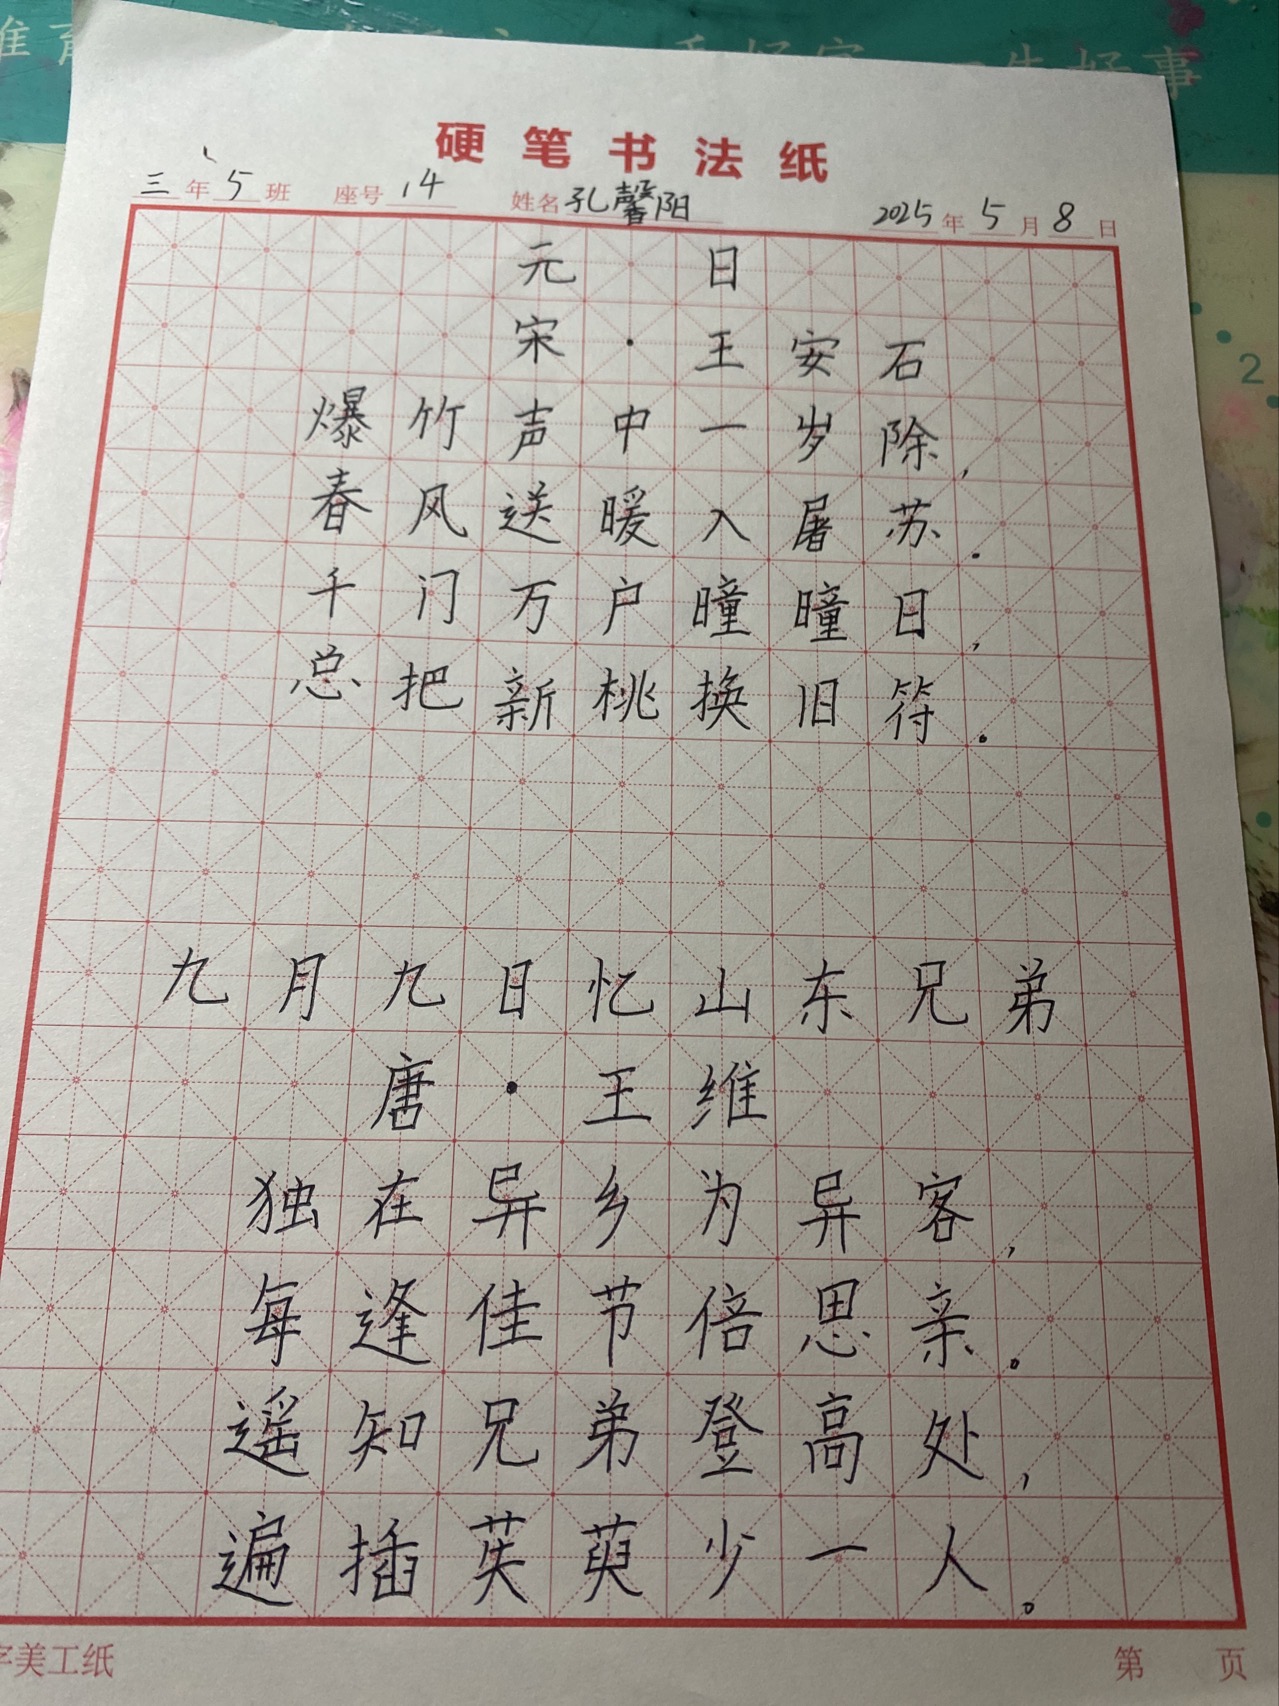 好事
硬笔书法纸
三年5班 座号14 姓名孔馨阳 2025年5月8日
元·日
宋·王安石
爆竹声中一岁除,
春风送暖入屠苏.
千门万户曈曈日,
总把新桃换旧符.
2
九月九日忆山东兄弟
唐·王维
独在异乡为异客,
每逢佳节倍思亲。
遥知兄弟登高处,
遍插茱萸少一人。
字美工纸
第 页